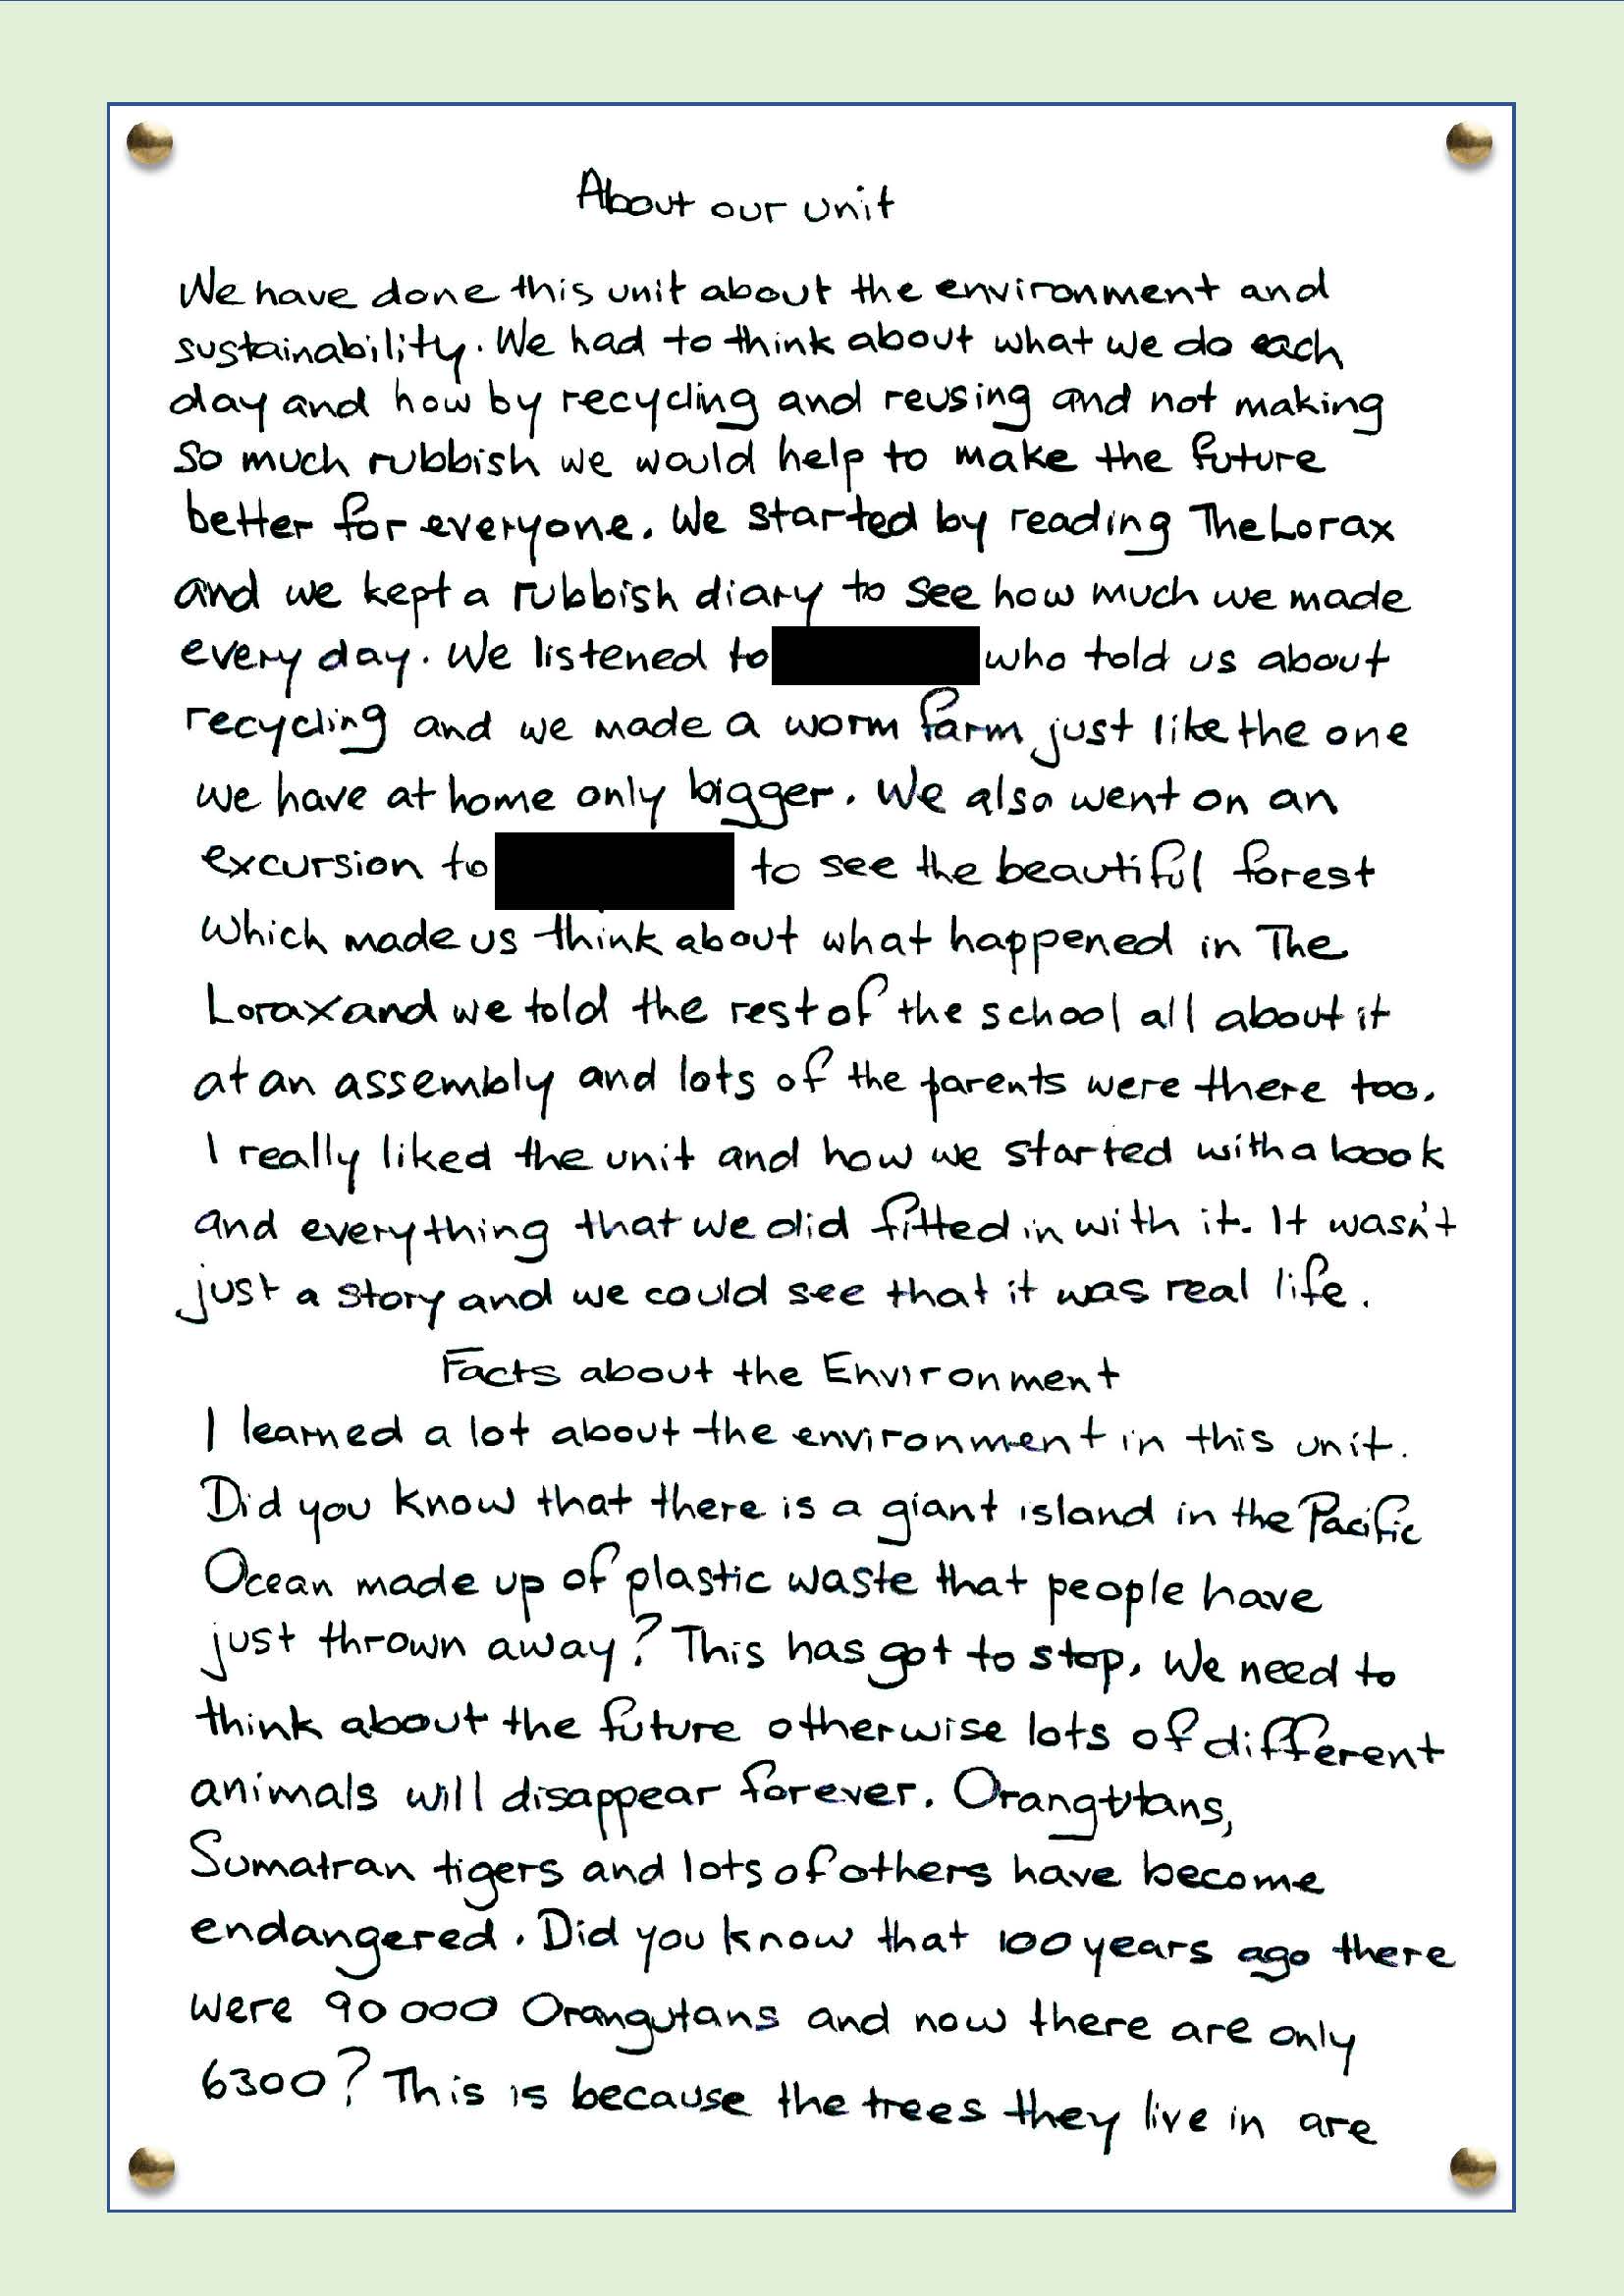 About our unit
We have done this unit about the environment and
sustainability. We had to think about what we do each
day and how by recycling and reusing and not making
so much rubbish we would help to make the future
better for everyone. We started by reading The Lorax
and we kept a rubbish diary to see how much we made
every day. We listened to who told us about
recycling and we made a worm farm just like the one
we have at home only bigger. We also went on an
excursion to to see the beautiful forest
which made us think about what happened in The
Lorax and we told the rest of the school all about it
at an assembly and lots of the parents were there too.
I really liked the unit and how we started with a book
and everything that we did fitted in with it. It wasn't
just a story and we could see that it was real life.
Facts about the Environment
I learned a lot about the environment in this unit.
Did you know that there is a giant island in the Pacific
Ocean made up of plastic waste that people have
just thrown away? This has got to stop. We need to
think about the future otherwise lots of different
animals will disappear forever. Orangutans,
Sumatran tigers and lots of others have become
endangered. Did you know that 100 years ago there
were 90 000 Orangutans and now there are only
6300? This is because the trees they live in are